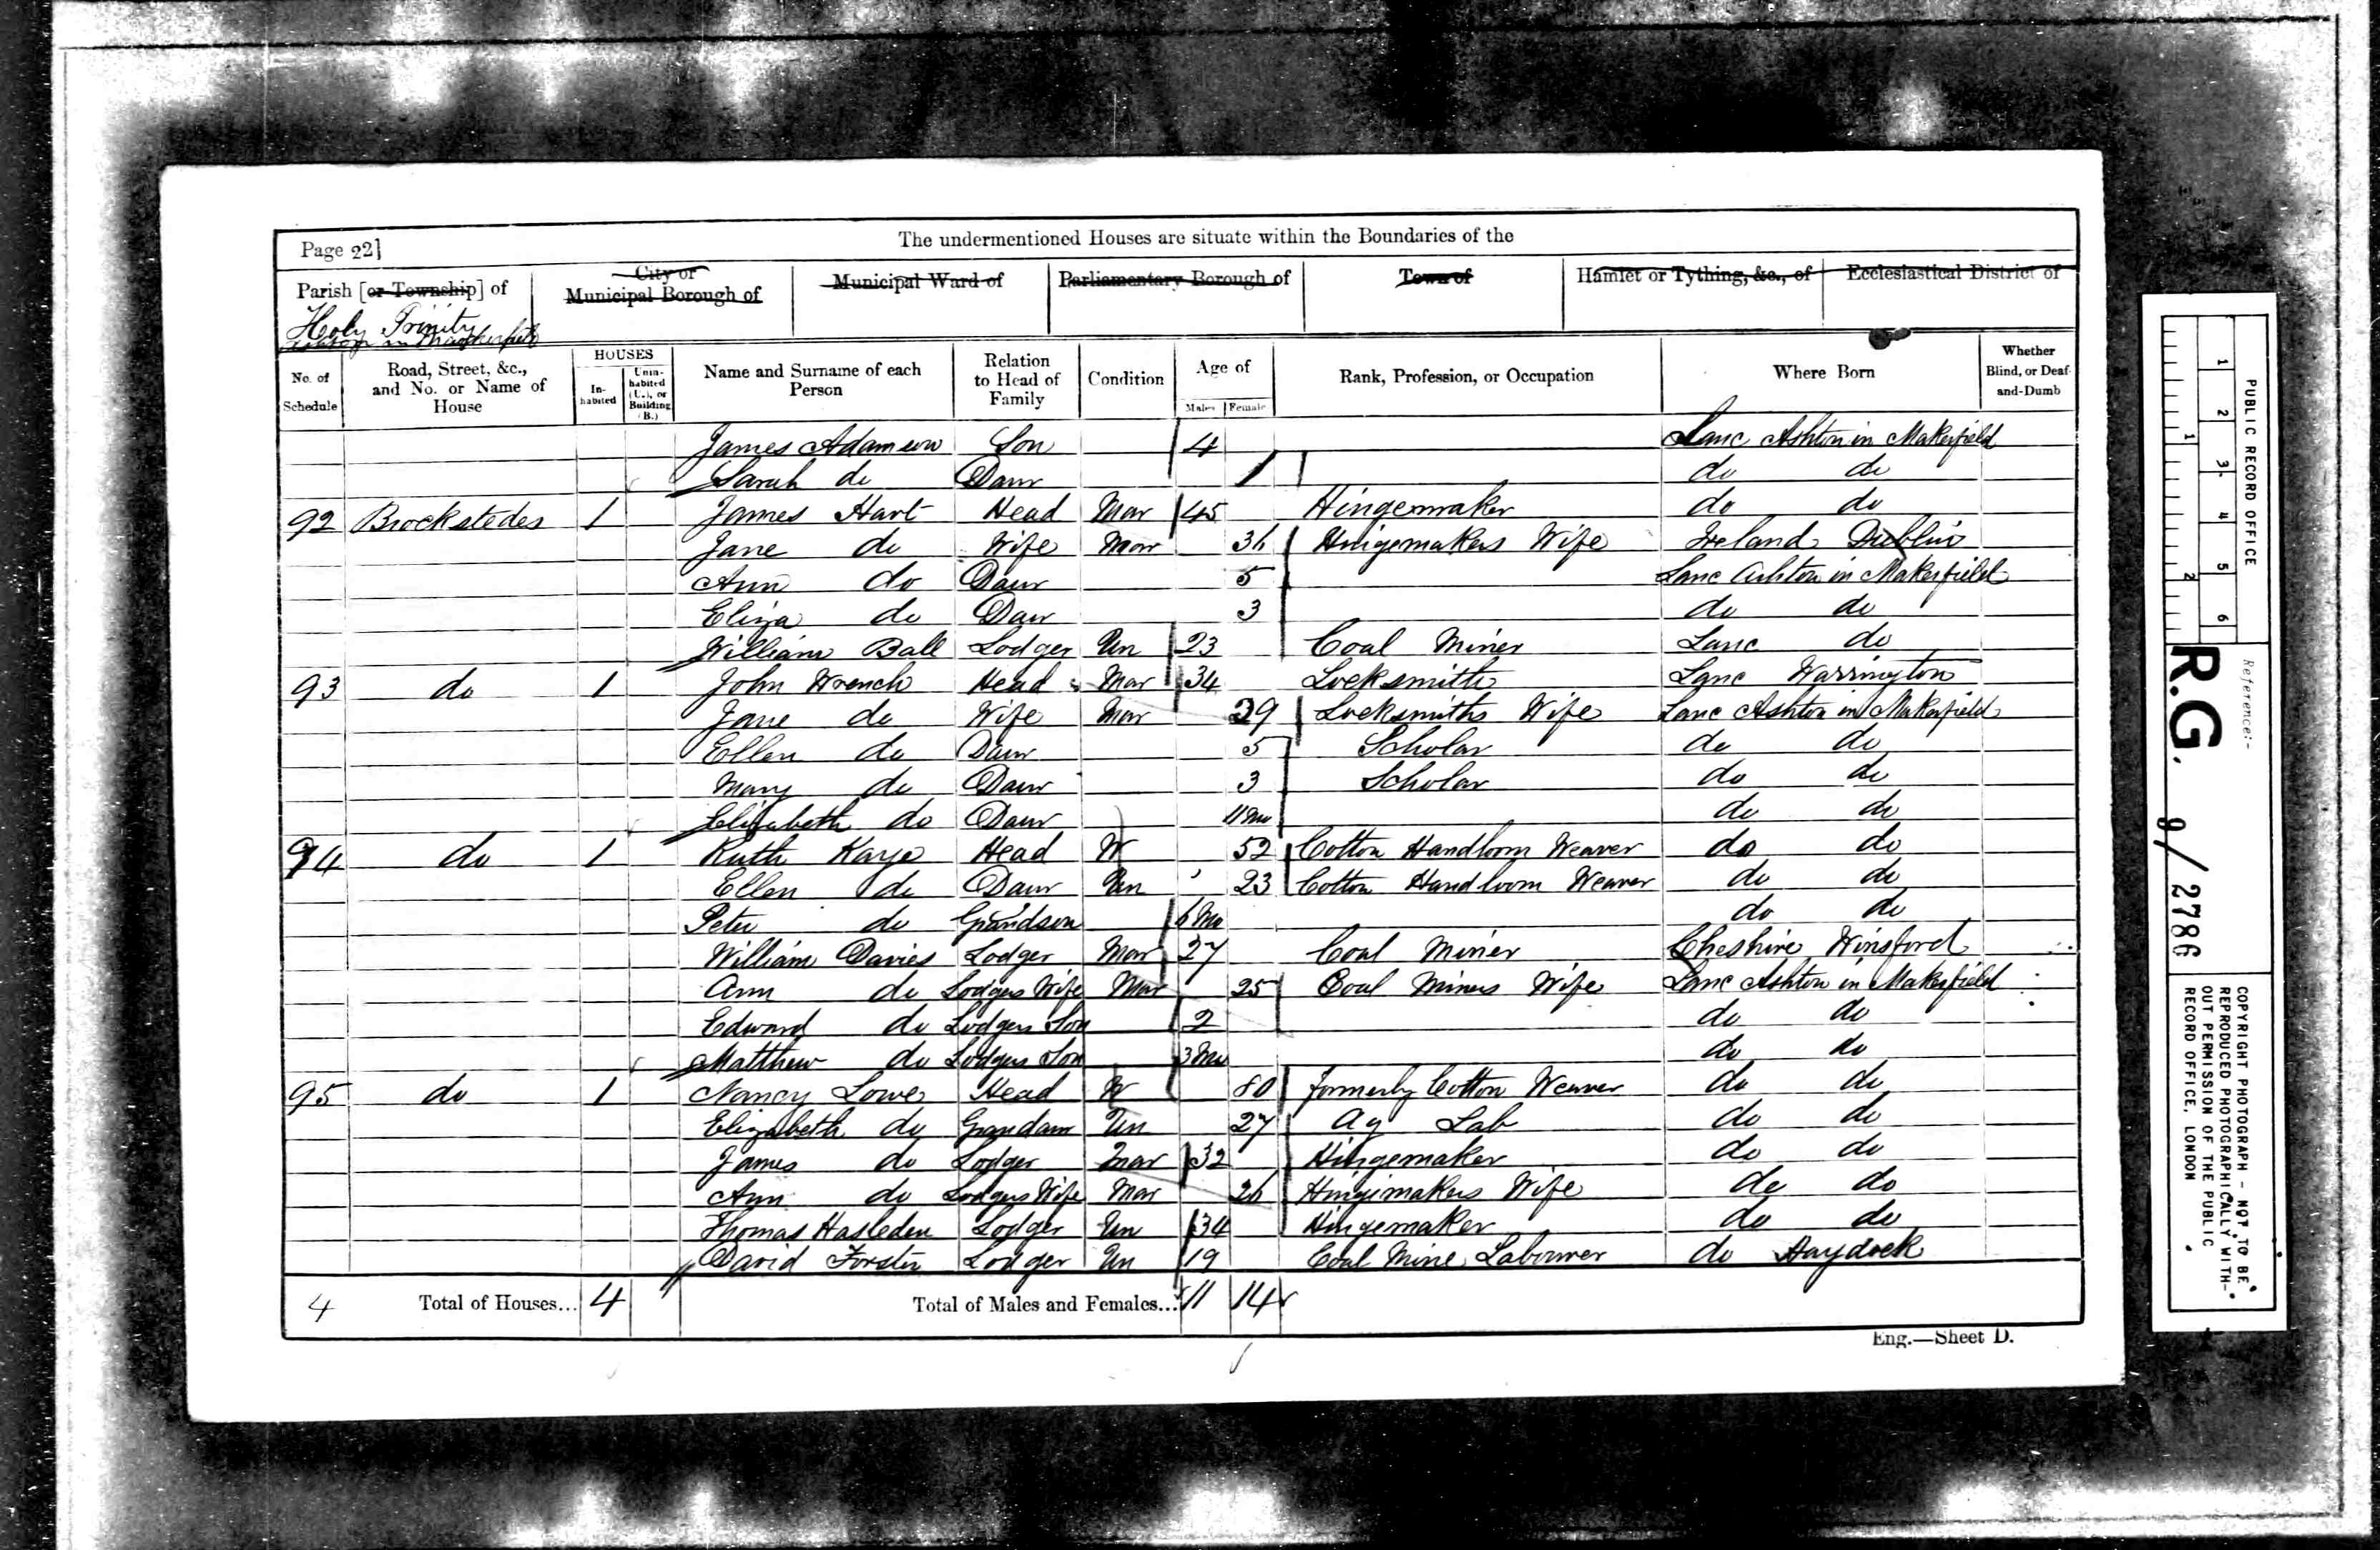 Page 22]
The undermentioned Houses are situate within the Boundaries of the
Parish [or Township] of
City or Municipal Borough of
Municipal Ward of
Parliamentary Borough of
Town of
Hamlet or Tything, &c., of
Ecclesiastical District of
Holy Trinity
in
No. of Schedule
Road, Street, &c., and No. or Name of House
HOUSES
In-habited
Unin-habited (U.), or Building (B.)
Name and Surname of each Person
Relation to Head of Family
Condition
Age of
Males
Female
Rank, Profession, or Occupation
Where Born
Whether Blind, or Deaf-and-Dumb
James Adamson Son 4 Lanc Ashton in Makerfield
Sarah do Daur 1 do do
92 Brockstedes 1 James Hart Head Mar 45 Hingemaker do do
Jane do Wife Mar 36 Hingemakers Wife Ireland Dublin
Ann do Daur 5 Lanc Ashton in Makerfield
Eliza do Daur 3 do do
William Ball Lodger Un 23 Coal Miner Lanc do
93 do 1 John Wrench Head Mar 34 Locksmith Lanc Warrington
Jane do Wife Mar 29 Locksmiths Wife Lanc Ashton in Makerfield
Ellen do Daur 5 Scholar do do
Mary do Daur 3 Scholar do do
Elizabeth do Daur 11 Mo do do
94 do 1 Ruth Kaye Head W 52 Cotton Handloom Weaver do do
Ellen do Daur Un 23 Cotton Handloom Weaver do do
Peter do Grandson 6 Mo do do
William Davies Lodger Mar 27 Coal Miner Cheshire Winsford
Ann do Lodgers Wife Mar 25 Coal Miners Wife Lanc Ashton in Makerfield
Edward do Lodgers Son 2 do do
Matthew do Lodgers Son 3 Mo do do
95 do 1 Nancy Lowe Head W 80 formerly Cotton Weaver do do
Elizabeth do Grandaur Un 27 Ag Lab do do
James do Lodger Mar 32 Hingemaker do do
Ann do Lodgers Wife Mar 26 Hingimakers Wife do do
Thomas Hasleden Lodger Un 34 Hingemaker do do
David Forster Lodger Un 19 Coal Mine Labourer do Haydock
4 Total of Houses... 4 Total of Males and Females... 11 14
Eng.—Sheet D.
1 2 3 4 5 6
1 2
PUBLIC RECORD OFFICE
Reference:-
R.G. 9/2786
COPYRIGHT PHOTOGRAPH - NOT TO BE
REPRODUCED PHOTOGRAPHICALLY WITH-
OUT PERMISSION OF THE PUBLIC
RECORD OFFICE, LONDON